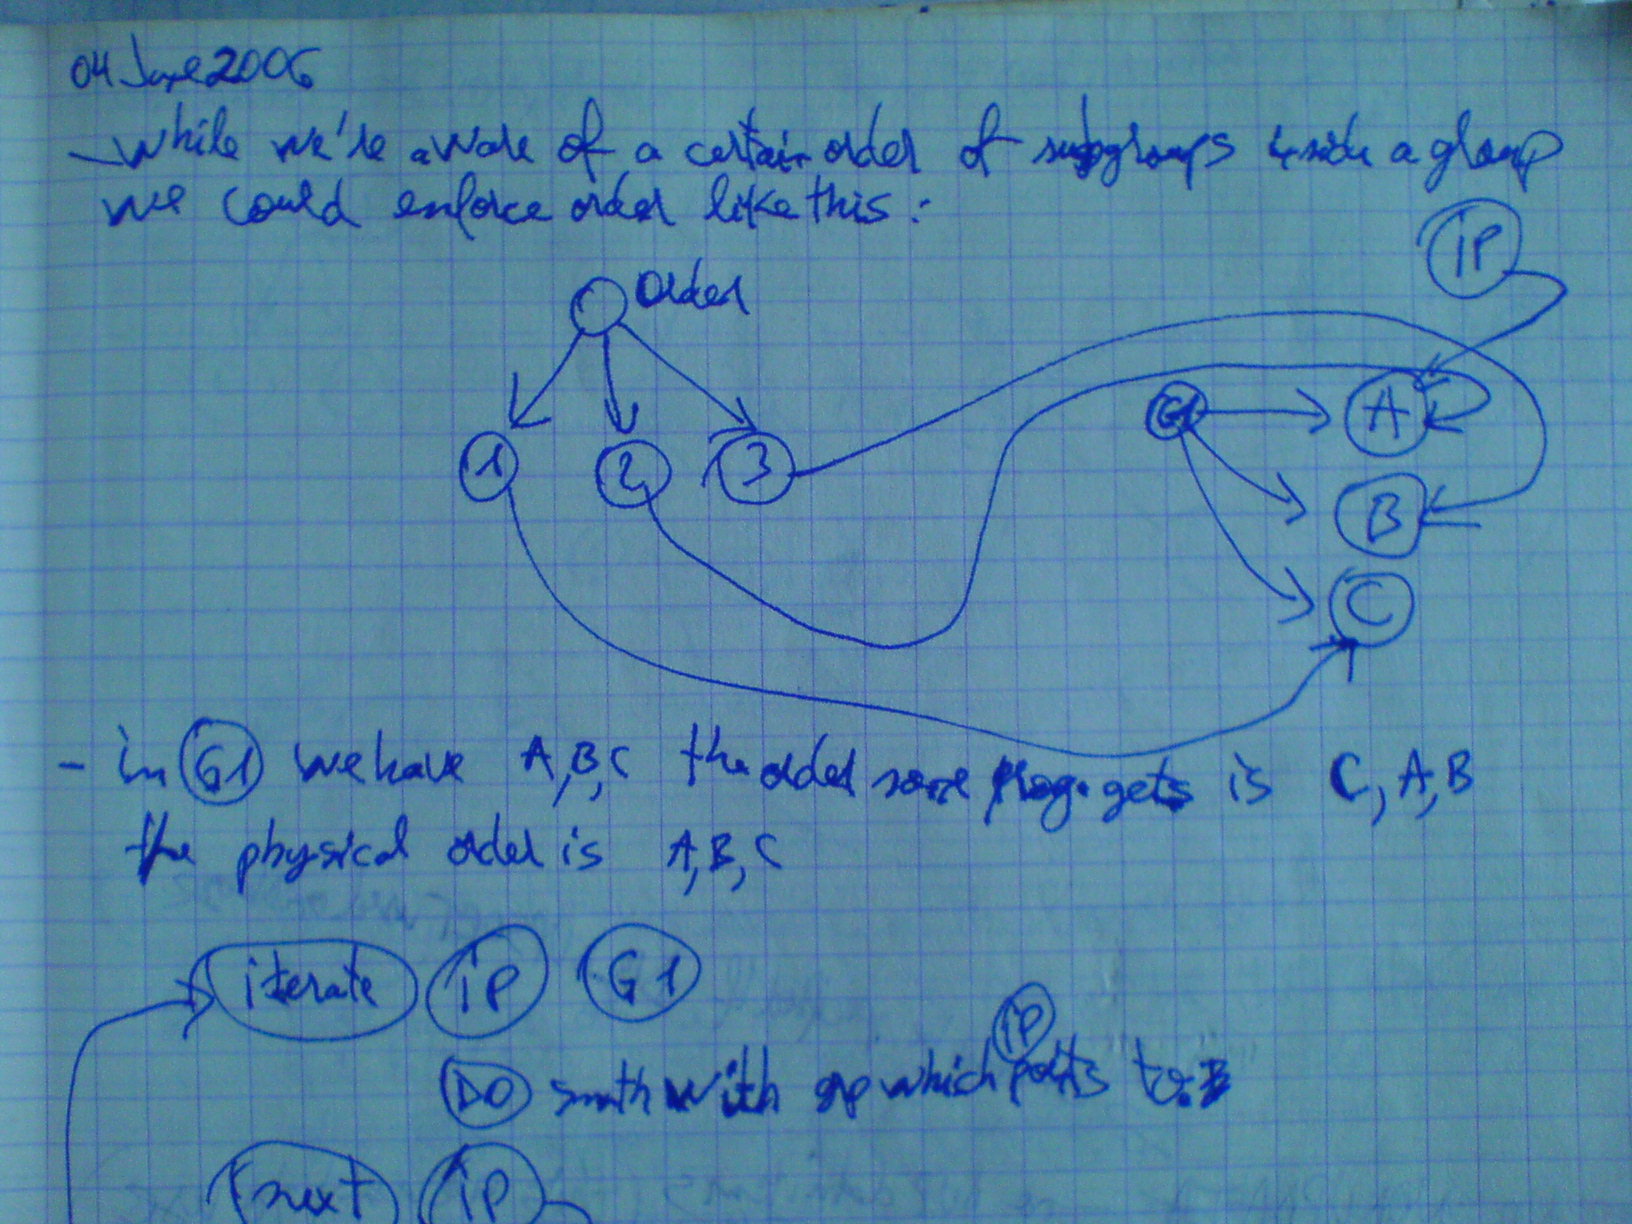 04 June 2006
- while we're aware of a certain order of subgroups inside a group
we could enforce order like this:
IP
Order
G1 A
1 2 3
B
C
- in G1 we have A,B,C the order some prog. gets is C, A, B
the physical order is A, B, C
iterate IP G1
IP
DO smth with grp which points to:
next IP